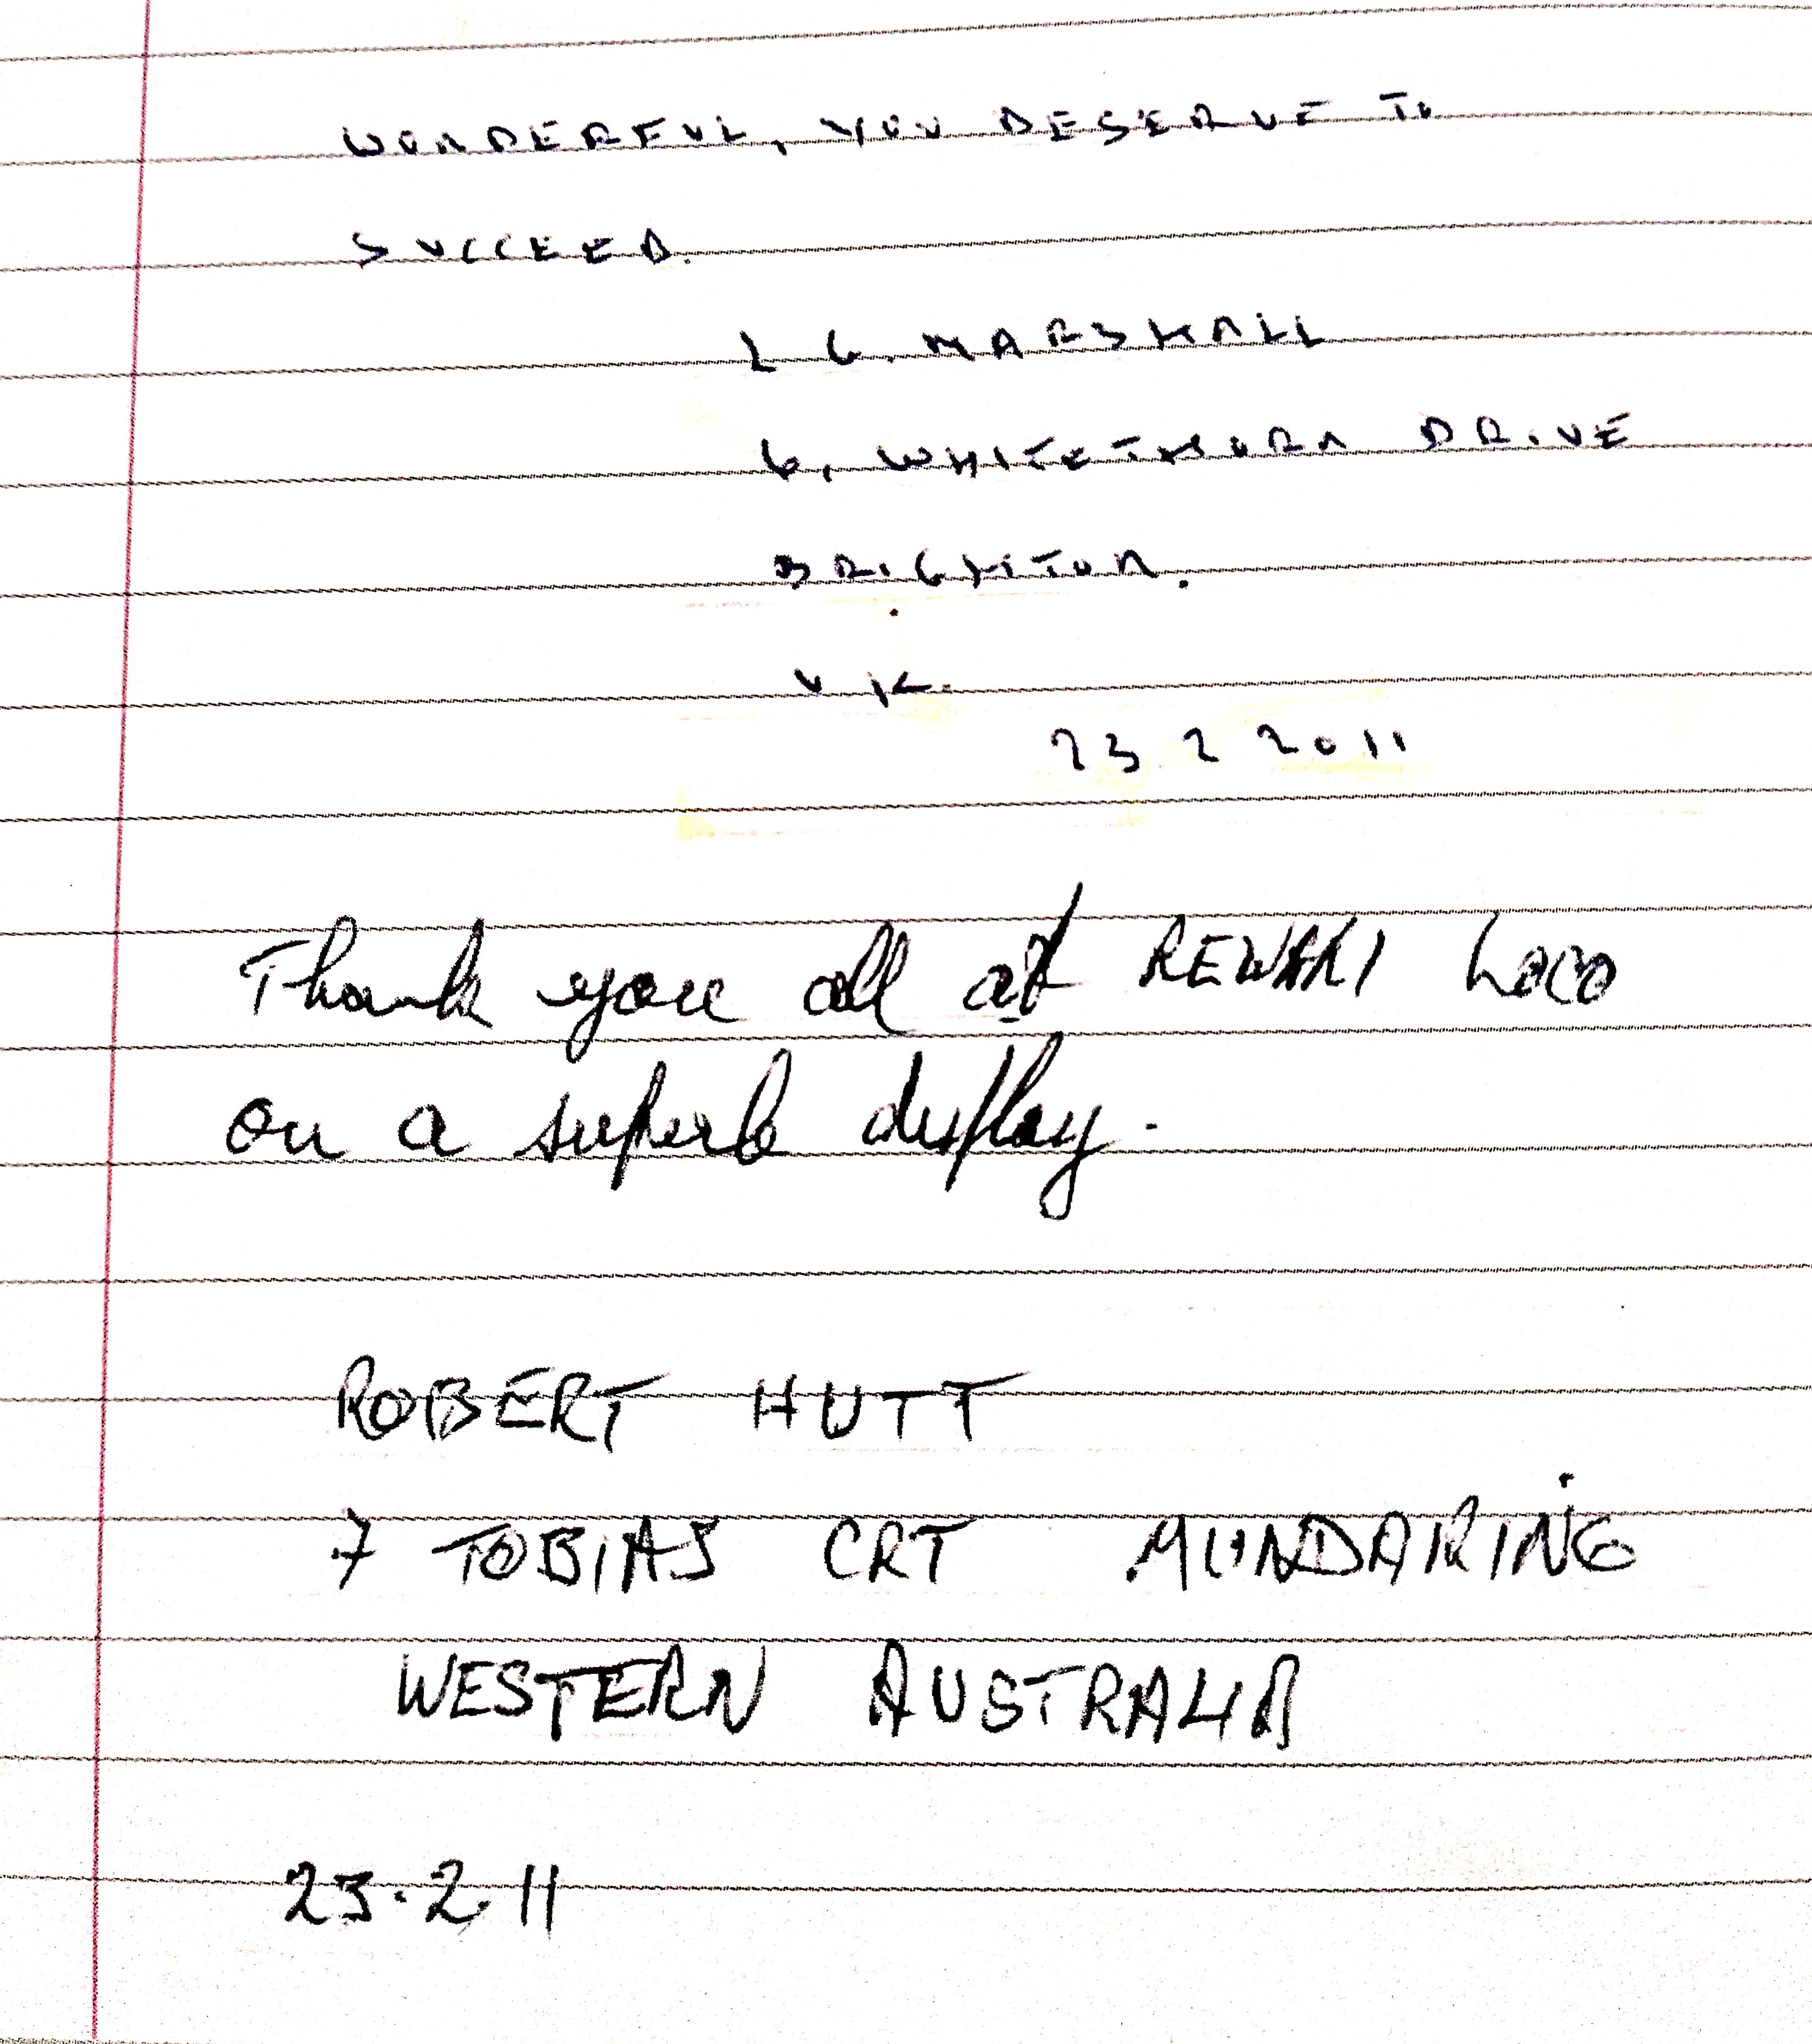 WONDERFUL, YOU DESERVE TO
SUCCEED.
L G. MARSHALL
6, WHITETHORN DRIVE
BRIGHTON.
UK.
23 2 2011
Thank you all at REWARI Loco
on a superb display.
ROBERT HUTT
7 TOBIAS CRT MUNDARING
WESTERN AUSTRALIA
23.2.11